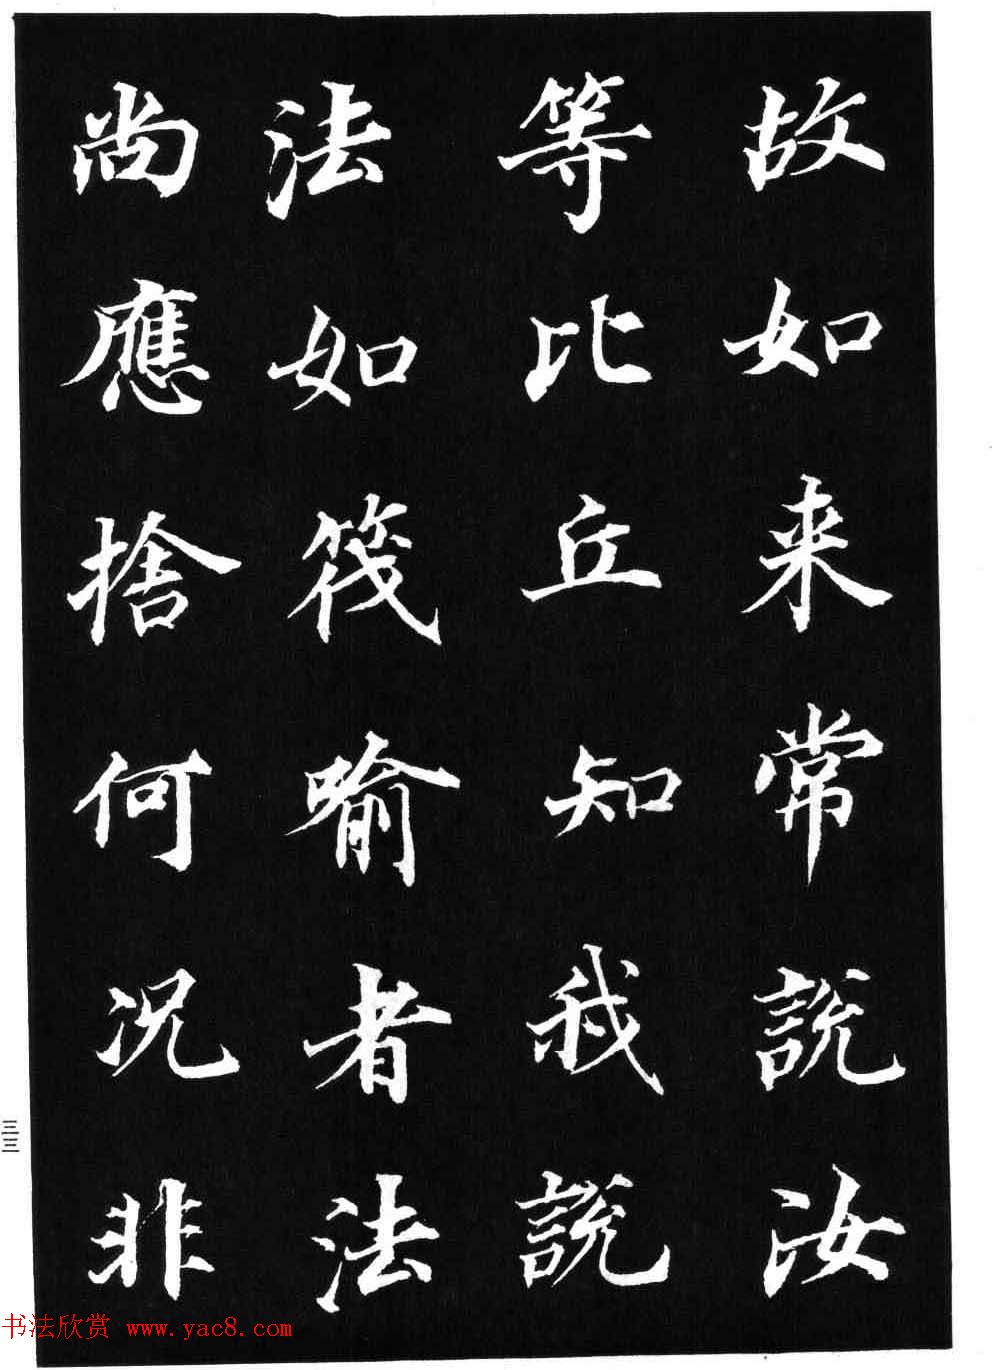 故如来常說汝
等比丘知我說
法如筏喻者法
尚應捨何況非
三三
书法欣赏 www.yac8.com